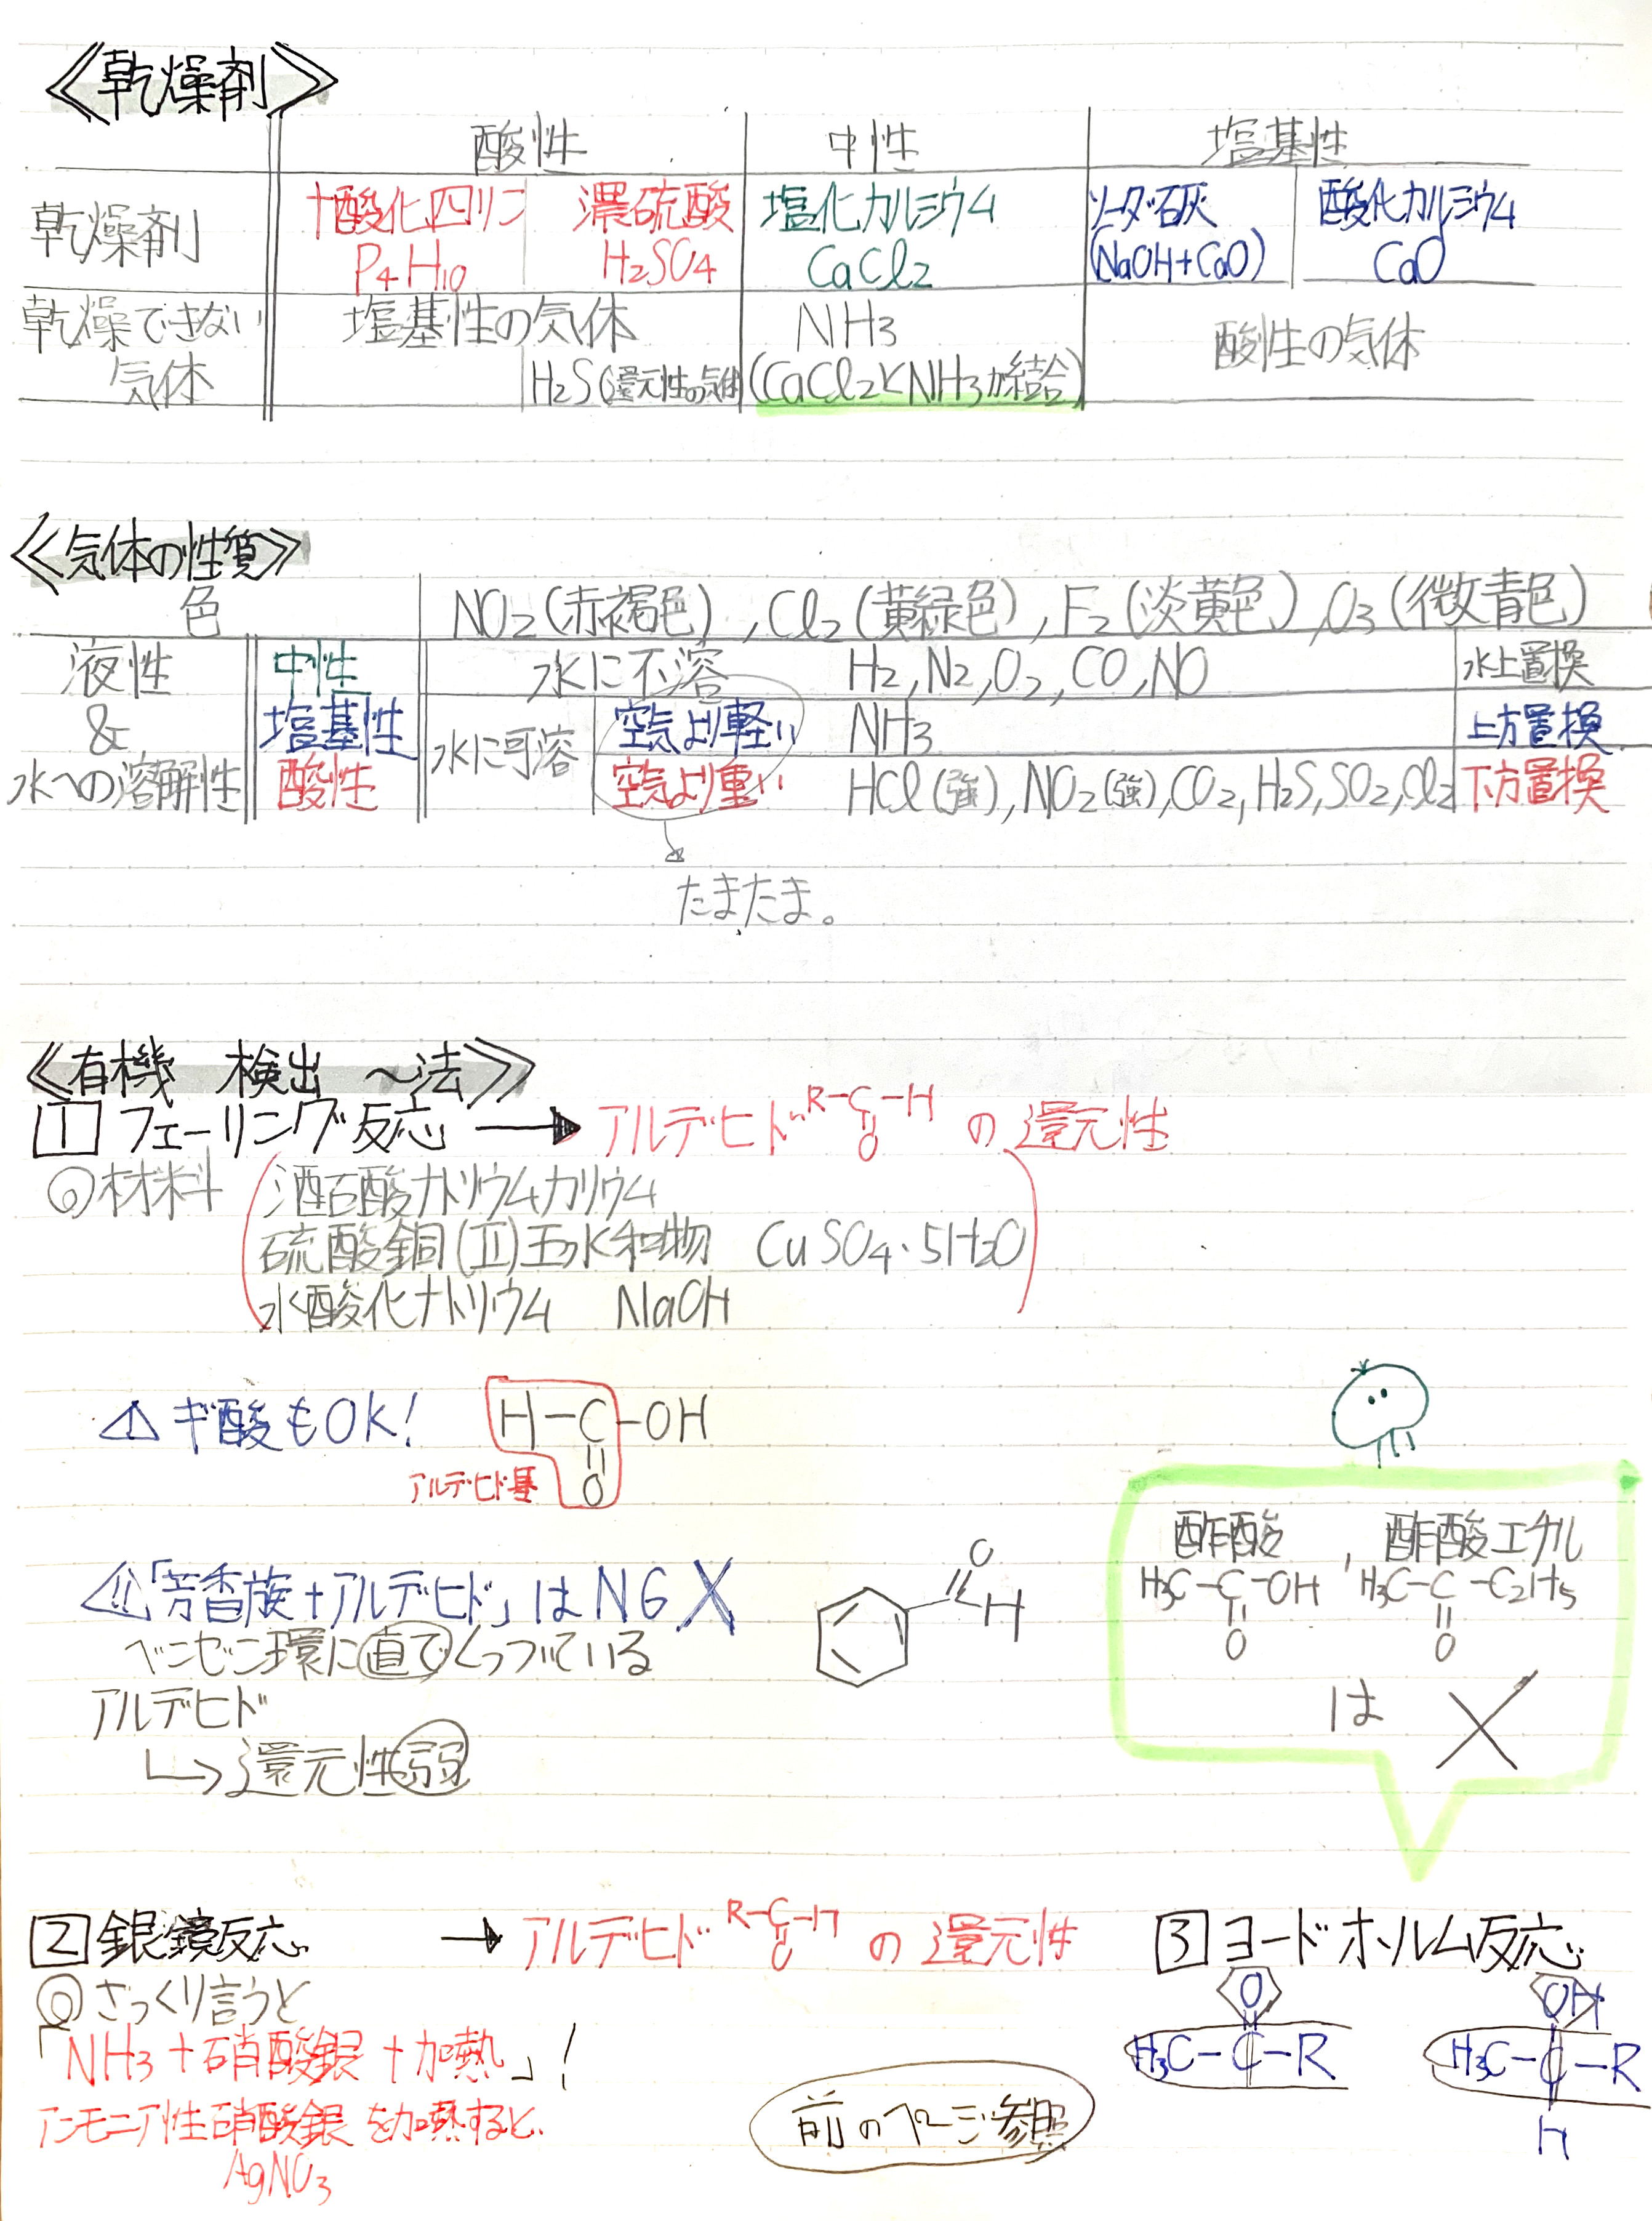 《乾燥剤》
酸性 中性 塩基性
乾燥剤 十酸化四リン 濃硫酸 塩化カルシウム ソーダ石灰 酸化カルシウム
P4H10 H2SO4 CaCl2 (NaOH+CaO) CaO
乾燥できない気体 塩基性の気体 NH3 酸性の気体
H2S(還元性の気体) (CaCl2とNH3が結合)
《気体の性質》
色 NO2(赤褐色), Cl2(黄緑色), F2(淡黄色), O3(微青色)
液性 中性 水に不溶 H2, N2, O2, CO, NO 水上置換
& 塩基性 水に可溶 空気より軽い NH3 上方置換
水への溶解性 酸性 空気より重い HCl(強), NO2(強), CO2, H2S, SO2, Cl2 下方置換
たまたま。
《有機 検出 〜法》
1 フェーリング反応 → アルデヒド R-C-H の還元性
O
◎材料 酒石酸ナトリウムカリウム
硫酸銅(Ⅱ)五水和物 CuSO4・5H2O
水酸化ナトリウム NaOH
⚠ ギ酸もOK! H-C-OH
アルデヒド基 O
⚠「芳香族+アルデヒド」はNG X
ベンゼン環に直でくっついている
アルデヒド
↳還元性弱
O
H
酢酸, 酢酸エチル
H3C-C-OH H3C-C-C2H5
O O
は X
2 銀鏡反応 → アルデヒド R-C-H の還元性
O
◎ざっくり言うと
「NH3+硝酸銀+加熱」!
アンモニア性硝酸銀を加熱すると
AgNO3
前のページ参照
3 ヨードホルム反応
O OH
H3C-C-R H3C-C-R
H